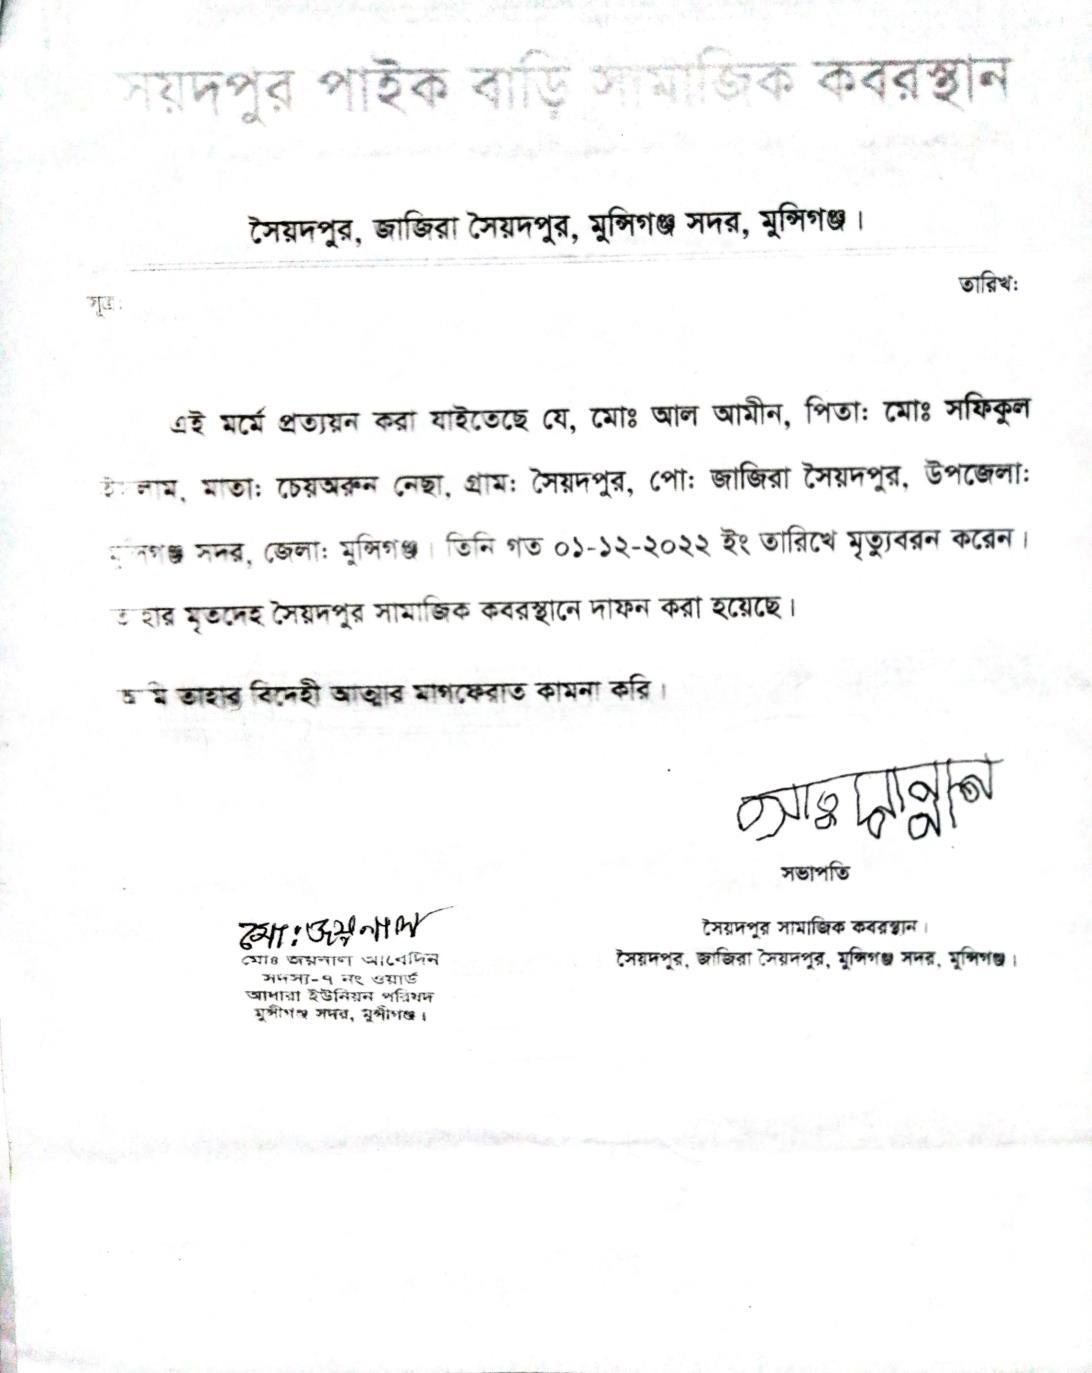 সয়দপুর পাইক বাড়ি সামাজিক কবরস্থান
সৈয়দপুর, জাজিরা সৈয়দপুর, মুন্সিগঞ্জ সদর, মুন্সিগঞ্জ।
তারিখ:
সূত্র:
এই মর্মে প্রত্যয়ন করা যাইতেছে যে, মোঃ আল আমীন, পিতা: মোঃ সফিকুল
ইসলাম, মাতা: চেয়অরুন নেছা, গ্রাম: সৈয়দপুর, পো: জাজিরা সৈয়দপুর, উপজেলা:
মুন্সিগঞ্জ সদর, জেলা: মুন্সিগঞ্জ। তিনি গত ০১-১২-২০২২ ইং তারিখে মৃত্যুবরন করেন।
তাহার মৃতদেহ সৈয়দপুর সামাজিক কবরস্থানে দাফন করা হয়েছে।
আমি তাহার বিদেহী আত্মার মাগফেরাত কামনা করি।
সভাপতি
সৈয়দপুর সামাজিক কবরস্থান।
সৈয়দপুর, জাজিরা সৈয়দপুর, মুন্সিগঞ্জ সদর, মুন্সিগঞ্জ।
মো: জয়নাল
মোঃ জয়নাল আবেদিন
সদস্য-৭ নং ওয়ার্ড
আধারা ইউনিয়ন পরিষদ
মুন্সীগঞ্জ সদর, মুন্সীগঞ্জ।